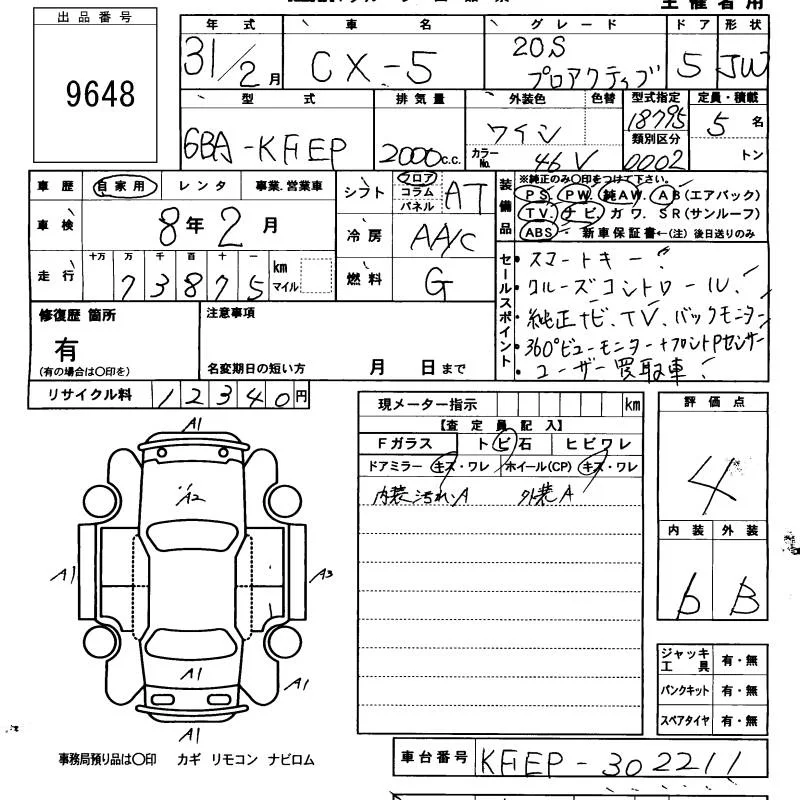 主催者用
出品番号
9648
年式 車名 グレード ドア 形状
31/2月 CX-5 20S プロアクティブ 5 JW
型式 排気量 外装色 色替 型式指定 定員・積載
6BA-KFEP 2000c.c. ワイン 18795 5名
カラーNo. 46V 類別区分 0002 トン
車歴 自家用 レンタ 事業.営業車
シフト フロア コラム パネル AT
車検 8年2月
冷房 AA/C
走行 十万 万 千 百 十 一 km マイル
73875
燃料 G
装備品 ※純正のみ○印をつけて下さい。
PS. PW. 純AW. AB(エアバック)
TV. ナビ. ガワ. SR(サンルーフ)
ABS 新車保証書←(注)後日送りのみ
セールスポイント
・スマートキー!
・クルーズコントロール!
・純正ナビ、TV、バックモニター
・360°ビューモニター+フロントPセンサー
・ユーザー買取車!
修復歴 箇所
有
(有の場合は○印を)
注意事項
名変期日の短い方 月 日まで
リサイクル料 12340円
現メーター指示 km
【査定員記入】
Fガラス トビ石 ヒビワレ
ドアミラー キズ・ワレ ホイール(CP) キズ・ワレ
内装汚れ.A 外装A
評価点
4
内装 外装
b B
A1
A2
A1
A3
A1
A1
A1
ジャッキ工具 有・無
パンクキット 有・無
スペアタイヤ 有・無
事務局預り品は○印 カギ リモコン ナビロム
車台番号 KFEP-302211